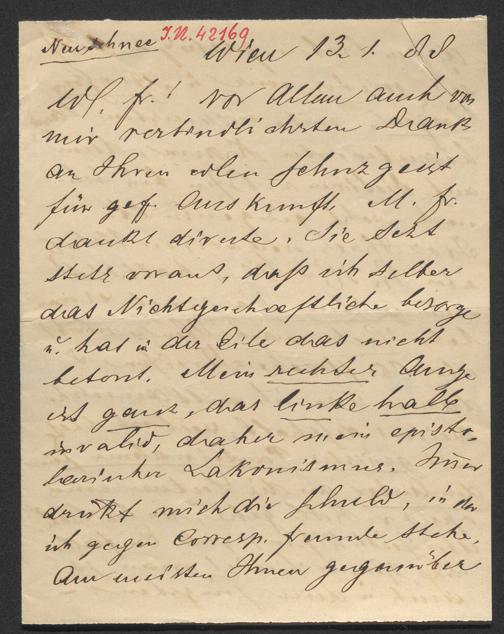 Neuschnee
I.N. 42169
Wien 13. 1. 88
W. fr.! vor Allem auch von
mir verbindlichsten Dank
an Ihren edlen Schuzgeist
für gef. Auskunft. M. fr.
dankt directe. Sie sezt
stets voraus, daß ich selber
das Nichtgeschaeftliche besorge
u. hat in der Eile das nicht
betont. Mein rechtes Auge
ist ganz, das linke halb
invalid, daher mein episto-
larischer Lakonismus. Immer
drükt mich die Schuld, in der
ich gegen Corresp. freunde stehe,
Am meisten Ihnen gegenüber